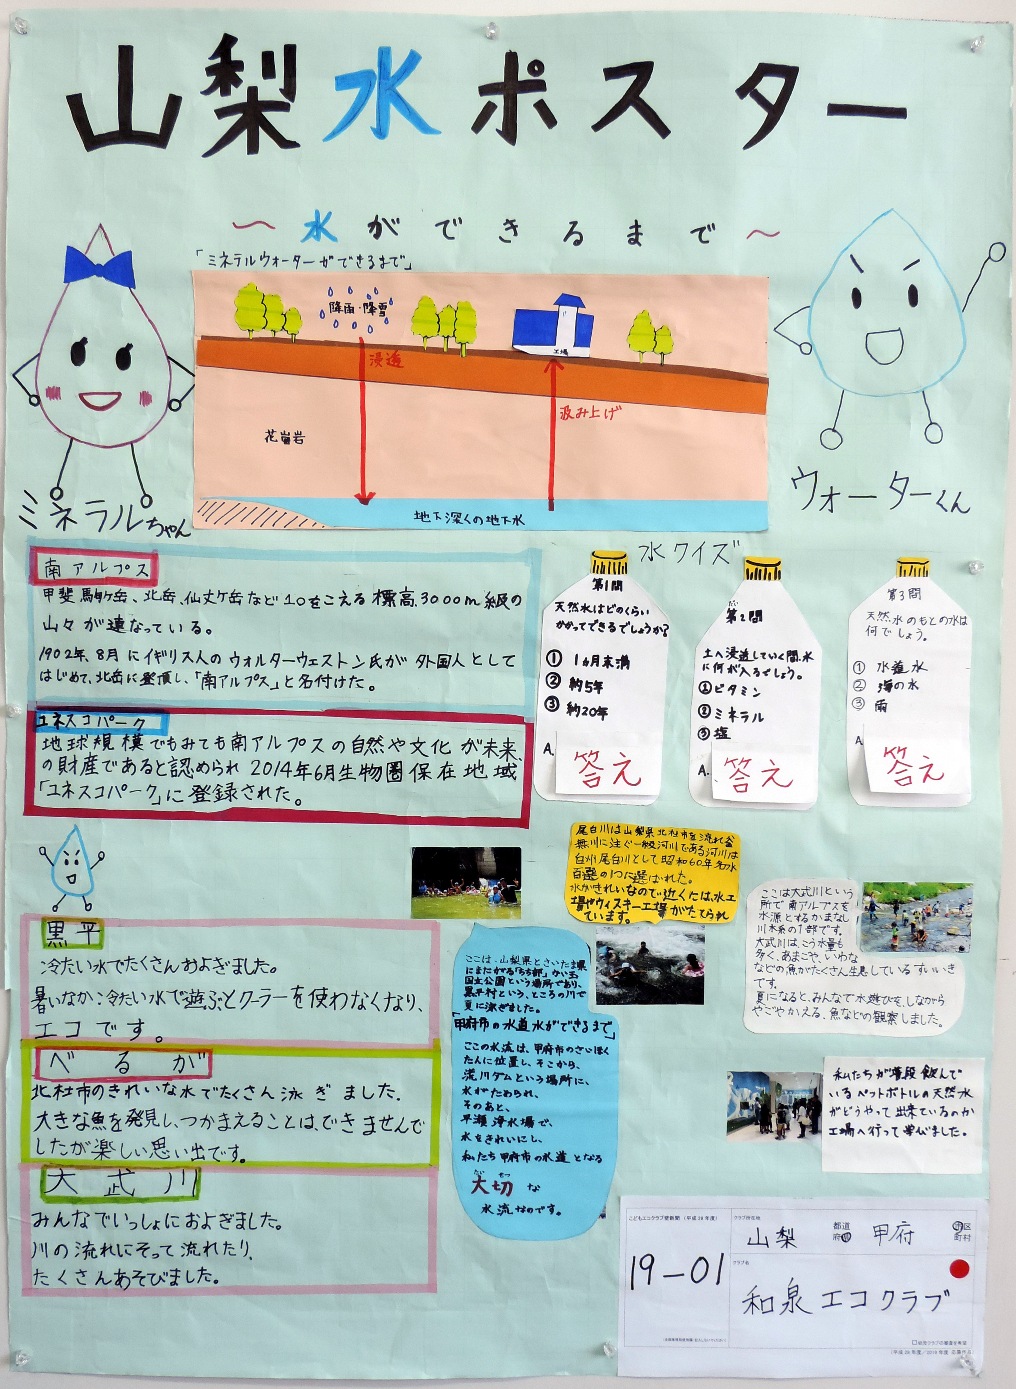 山梨水ポスター
〜水ができるまで〜
「ミネラルウォーターができるまで」
降雨・降雪
浸透
工場
汲み上げ
花崗岩
地下深くの地下水
ミネラルちゃん
ウォーターくん
南アルプス
甲斐駒ヶ岳、北岳、仙丈ケ岳など10をこえる標高3000m級の
山々が連なっている。
1902年、8月にイギリス人のウォルターウェストン氏が外国人として
はじめて、北岳に登頂し、「南アルプス」と名付けた。
ユネスコパーク
地球規模でもみても南アルプスの自然や文化が未来
の財産であると認められ2014年6月生物圏保在地域
「ユネスコパーク」に登録された。
水クイズ
第1問
天然水はどのくらい
かかってできるでしょうか?
① 1ヵ月未満
② 約5年
③ 約20年
A.
答え
第2問
土へ浸透していく間、水
に何が入るでしょう。
①ビタミン
②ミネラル
③塩
A.
答え
第3問
天然水のもとの水は
何でしょう。
① 水道水
② 海の水
③ 雨
A
答え
尾白川は山梨県北杜市を流れ釜
無川に注ぐ一級河川である河川は
白州尾白川として昭和60年名水
百選の1つに選ばれた。
水がきれいなので近くには、水工
場やウィスキー工場がたてられ
ています。
ここは大武川という
所で南アルプスを
水源とするかまなし
川水系の1部です。
大武川は、こう水量も
多く、あまごや、いわな
などの魚がたくさん生息しているすいいき
です。
夏になると、みんなで水遊びを、しながら
やごやかえる、魚などの観察しました。
黒平
冷たい水でたくさんおよぎました。
暑いなか冷たい水で遊ぶとクーラーを使わなくなり、
エコです。
べるが
北杜市のきれいな水でたくさん泳ぎました。
大きな魚を発見し、つかまえることは、できませんで
したが楽しい思い出です。
大武川
みんなでいっしょにおよぎました。
川の流れにそって流れたり、
たくさんあそびました。
ここは、山梨県とさいたま県
にまたがる「ちち部」かい玉
国立公園という場所であり、
黒平村という、ところの川で
夏に泳ぎました。
「甲府市の水道水ができるまで」
ここの水流は、甲府市のさいほく
たんに位置し、そこから、
荒川ダムという場所に、
水がためられ、
そのあと、
平瀬浄水場で、
水をきれいにし、
私たち甲府市の水道となる
たいせつ
大切な
水流なのです。
私たちが普段飲んで
いるペットボトルの天然水
がどうやって出来ているのか
工場へ行って学びました。
こどもエコクラブ壁新聞（平成28年度）
19-01
クラブ所在地
山梨 都道府県 甲府 市区町村
クラブ名
和泉エコクラブ